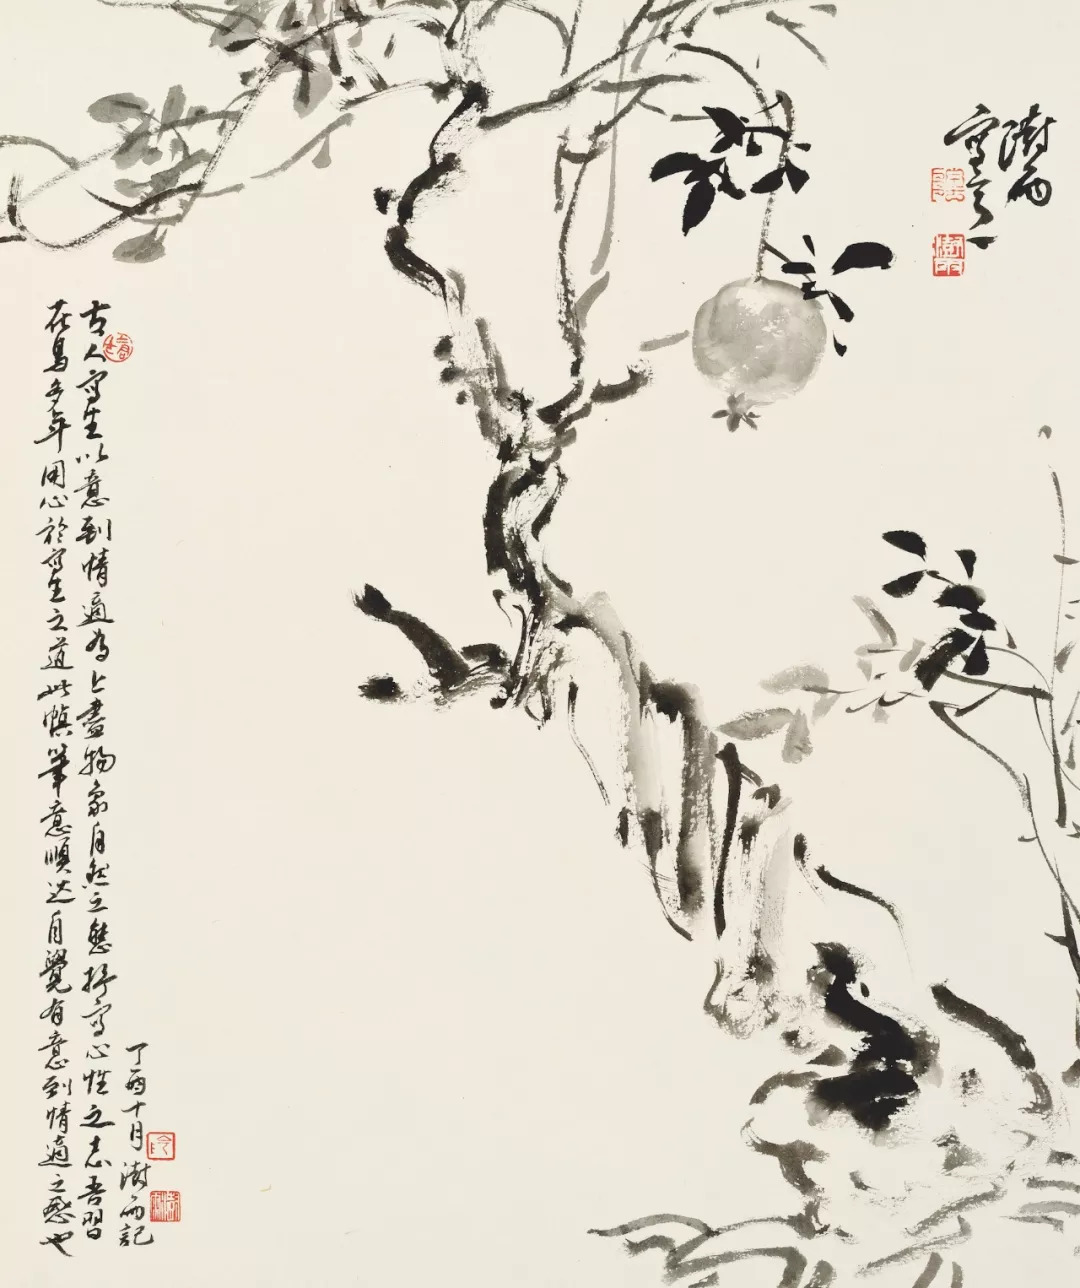 澍雨
寫
古人寫生以意到情適為上盡物象自然之態抒寫心性之志吾習
花鳥多年用心於寫生之道此幀筆意順达自覺有意到情適之感也
丁酉十月澍雨記